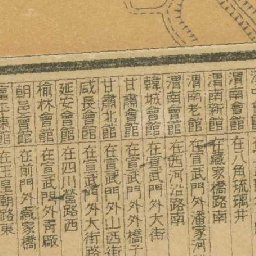 渭南會館 在八角琉璃井
渭南新館 在臧家橋路南
渭南老館 在宣武門外潘家河
渭南會館 在西河沿路南
韓城會館 在宣武門外大街
甘肅會館 在宣武門外橋子
甘肅北館 在宣武門外山西街
咸長會館 在宣武門外大街路
延安會館 在四川營路西
榆林會館 在宣武門外青廠
朝邑會館 在前門外臧家橋
富平東館 在玉皇廟路東